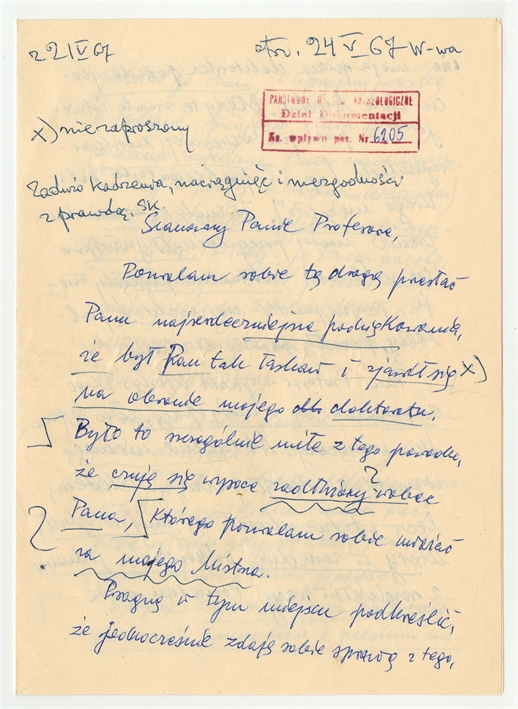 z 21 V 67
otrz. 24 V 67 W-wa
PAŃSTWOWE MUZEUM ARCHEOLOGICZNE
Dział Dokumentacji
Ks. wpływu poz. Nr. 6205
x) nie zaproszony
kadzenia, naciągnięć i niezgodności
z prawdą. SK.
Szanowny Panie Profesorze,
Pozwalam sobie tą drogą przesłać
Panu najserdeczniejsze podziękowania,
że był Pan tak łaskaw i zjawił się x)
na obronie mojego dokt doktoratu.
Było to szczególnie miłe z tego powodu,
że czuję się wysoce wobec
Pana, którego pozwalam sobie uważać
za mojego Mistrza.
Pragnę w tym miejscu podkreślić,
że jednocześnie zdaję sobie sprawę z tego,